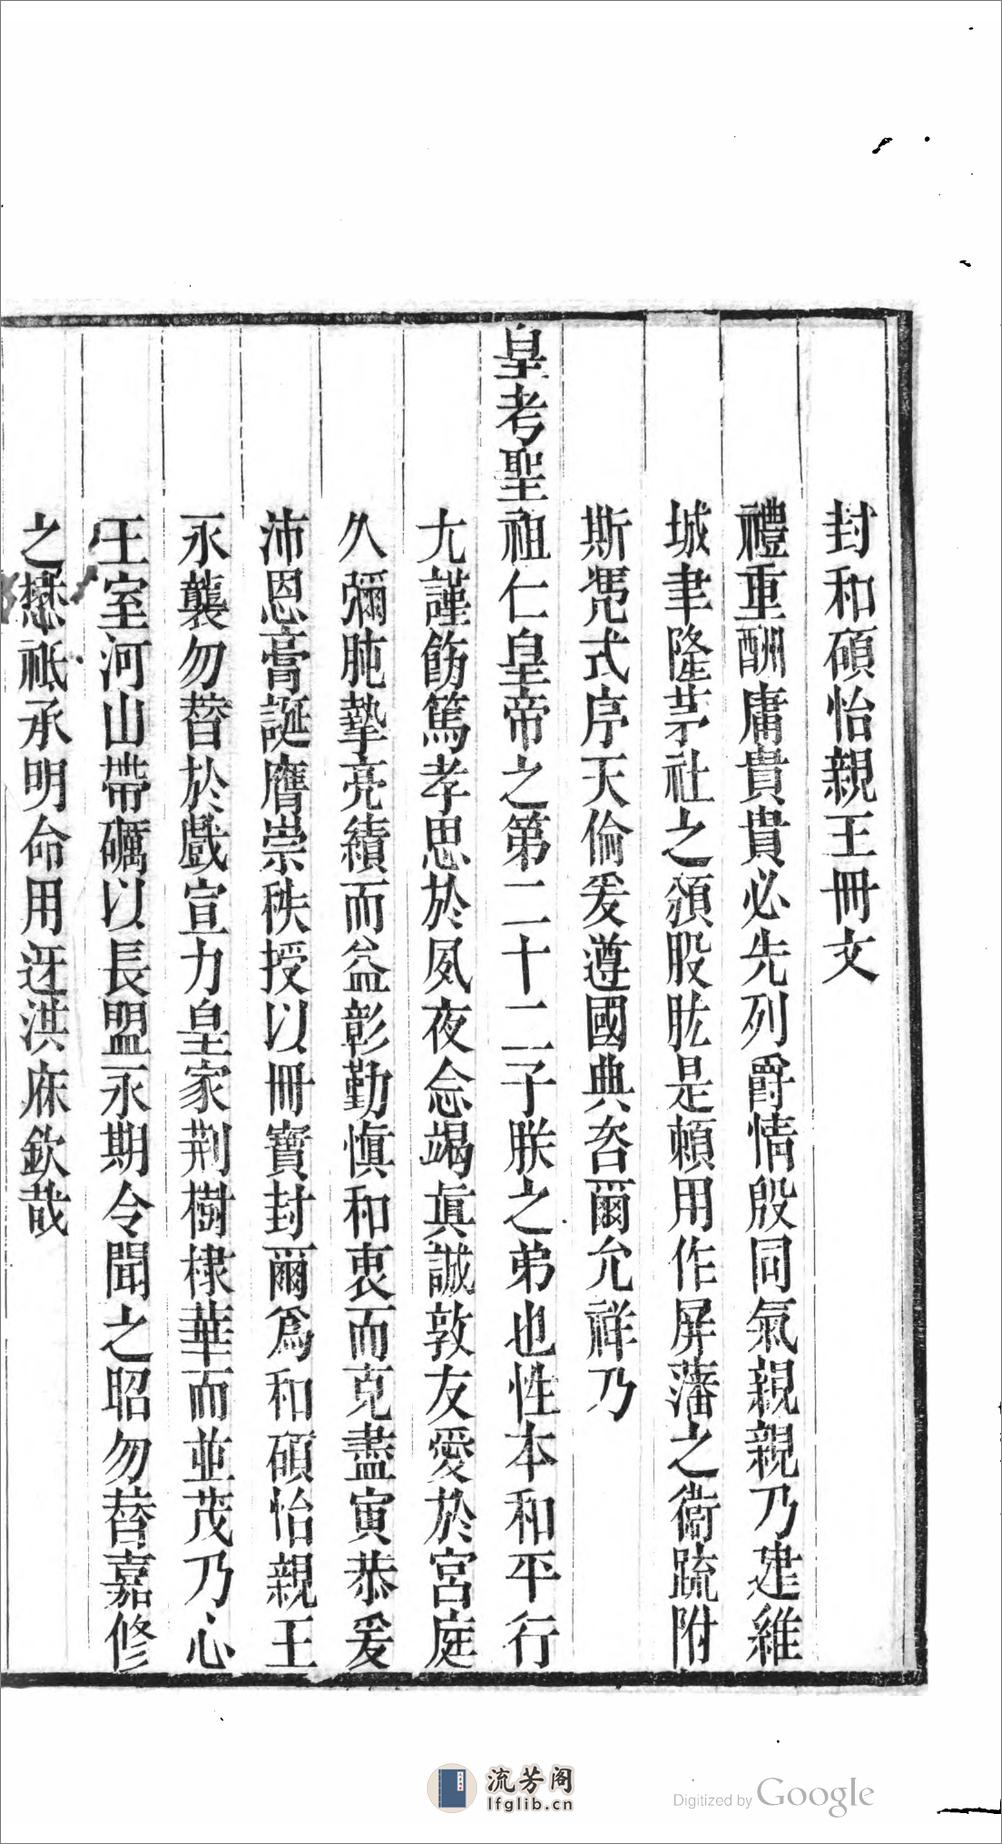 封和碩怡親王冊文
禮重酬庸貴貴必先列爵情殷同氣親親乃建維
城聿隆茅社之頒股肱是賴用作屏藩之衞䟽附
斯凭式序天倫爰遵國典咨爾允祥乃
皇考聖祖仁皇帝之第二十二子朕之弟也性本和平行
尤謹飭篤孝思於夙夜念竭眞誠敦友愛於宮庭
久彌肫摯亮績而益彰勤愼和衷而克盡寅恭爰
沛恩膏誕膺崇秩授以冊寶封爾爲和碩怡親王
永襲勿替於戲宣力皇家荆樹棣華而並茂乃心
王室河山帶礪以長盟永期令聞之昭勿替嘉修
之懋祗承明命用迓洪庥欽哉
流芳阁
lfglib.cn
Digitized by Google